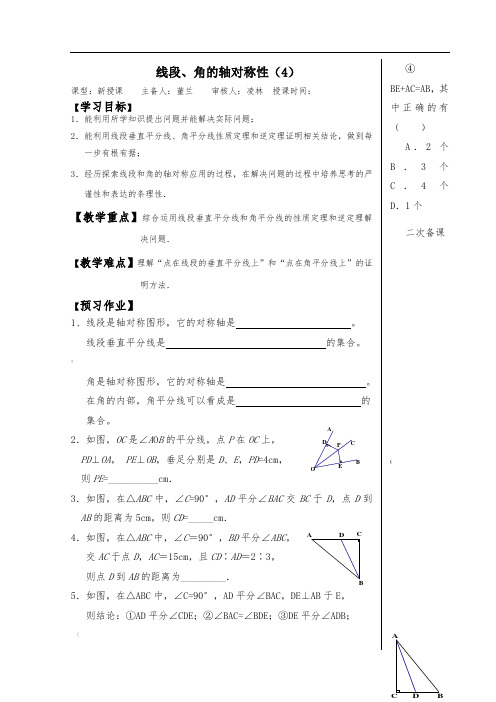 线段、角的轴对称性（4）
课型：新授课 主备人：董兰 审核人：凌林 授课时间：
【学习目标】
1．能利用所学知识提出问题并能解决实际问题；
2．能利用线段垂直平分线、角平分线性质定理和逆定理证明相关结论，做到每
一步有根有据；
3．经历探索线段和角的轴对称应用的过程，在解决问题的过程中培养思考的严
谨性和表达的条理性．
【教学重点】综合运用线段垂直平分线和角平分线的性质定理和逆定理解
决问题．
【教学难点】理解“点在线段的垂直平分线上”和“点在角平分线上”的证
明方法．
【预习作业】
1、线段是轴对称图形，它的对称轴是 。
线段垂直平分线是 的集合。
角是轴对称图形，它的对称轴是 。
在角的内部，角平分线可以看成是 的
集合。
2．如图，OC是∠AOB的平分线，点P在OC上，
PD⊥OA， PE⊥OB，垂足分别是D、E，PD=4cm，
则PE=__________cm．
A
D P C
O E B
3．如图，在△ABC中，∠C=90°，AD平分∠BAC交BC于D，点D到
AB的距离为5cm，则CD=_____cm．
4．如图，在△ABC中，∠C＝90°，BD平分∠ABC，
交AC于点D，AC＝15cm，且CD∶AD＝2∶3，
则点D到AB的距离为_________．
A D C
B
5．如图，在△ABC中，∠C=90°，AD平分∠BAC，DE⊥AB于E，
则结论：①AD平分∠CDE；②∠BAC=∠BDE；③DE平分∠ADB；
④
BE+AC=AB，其
中正确的有
（ ）
A．2 个
B．3 个
C．4 个
D．1个
二次备课
A
C D B